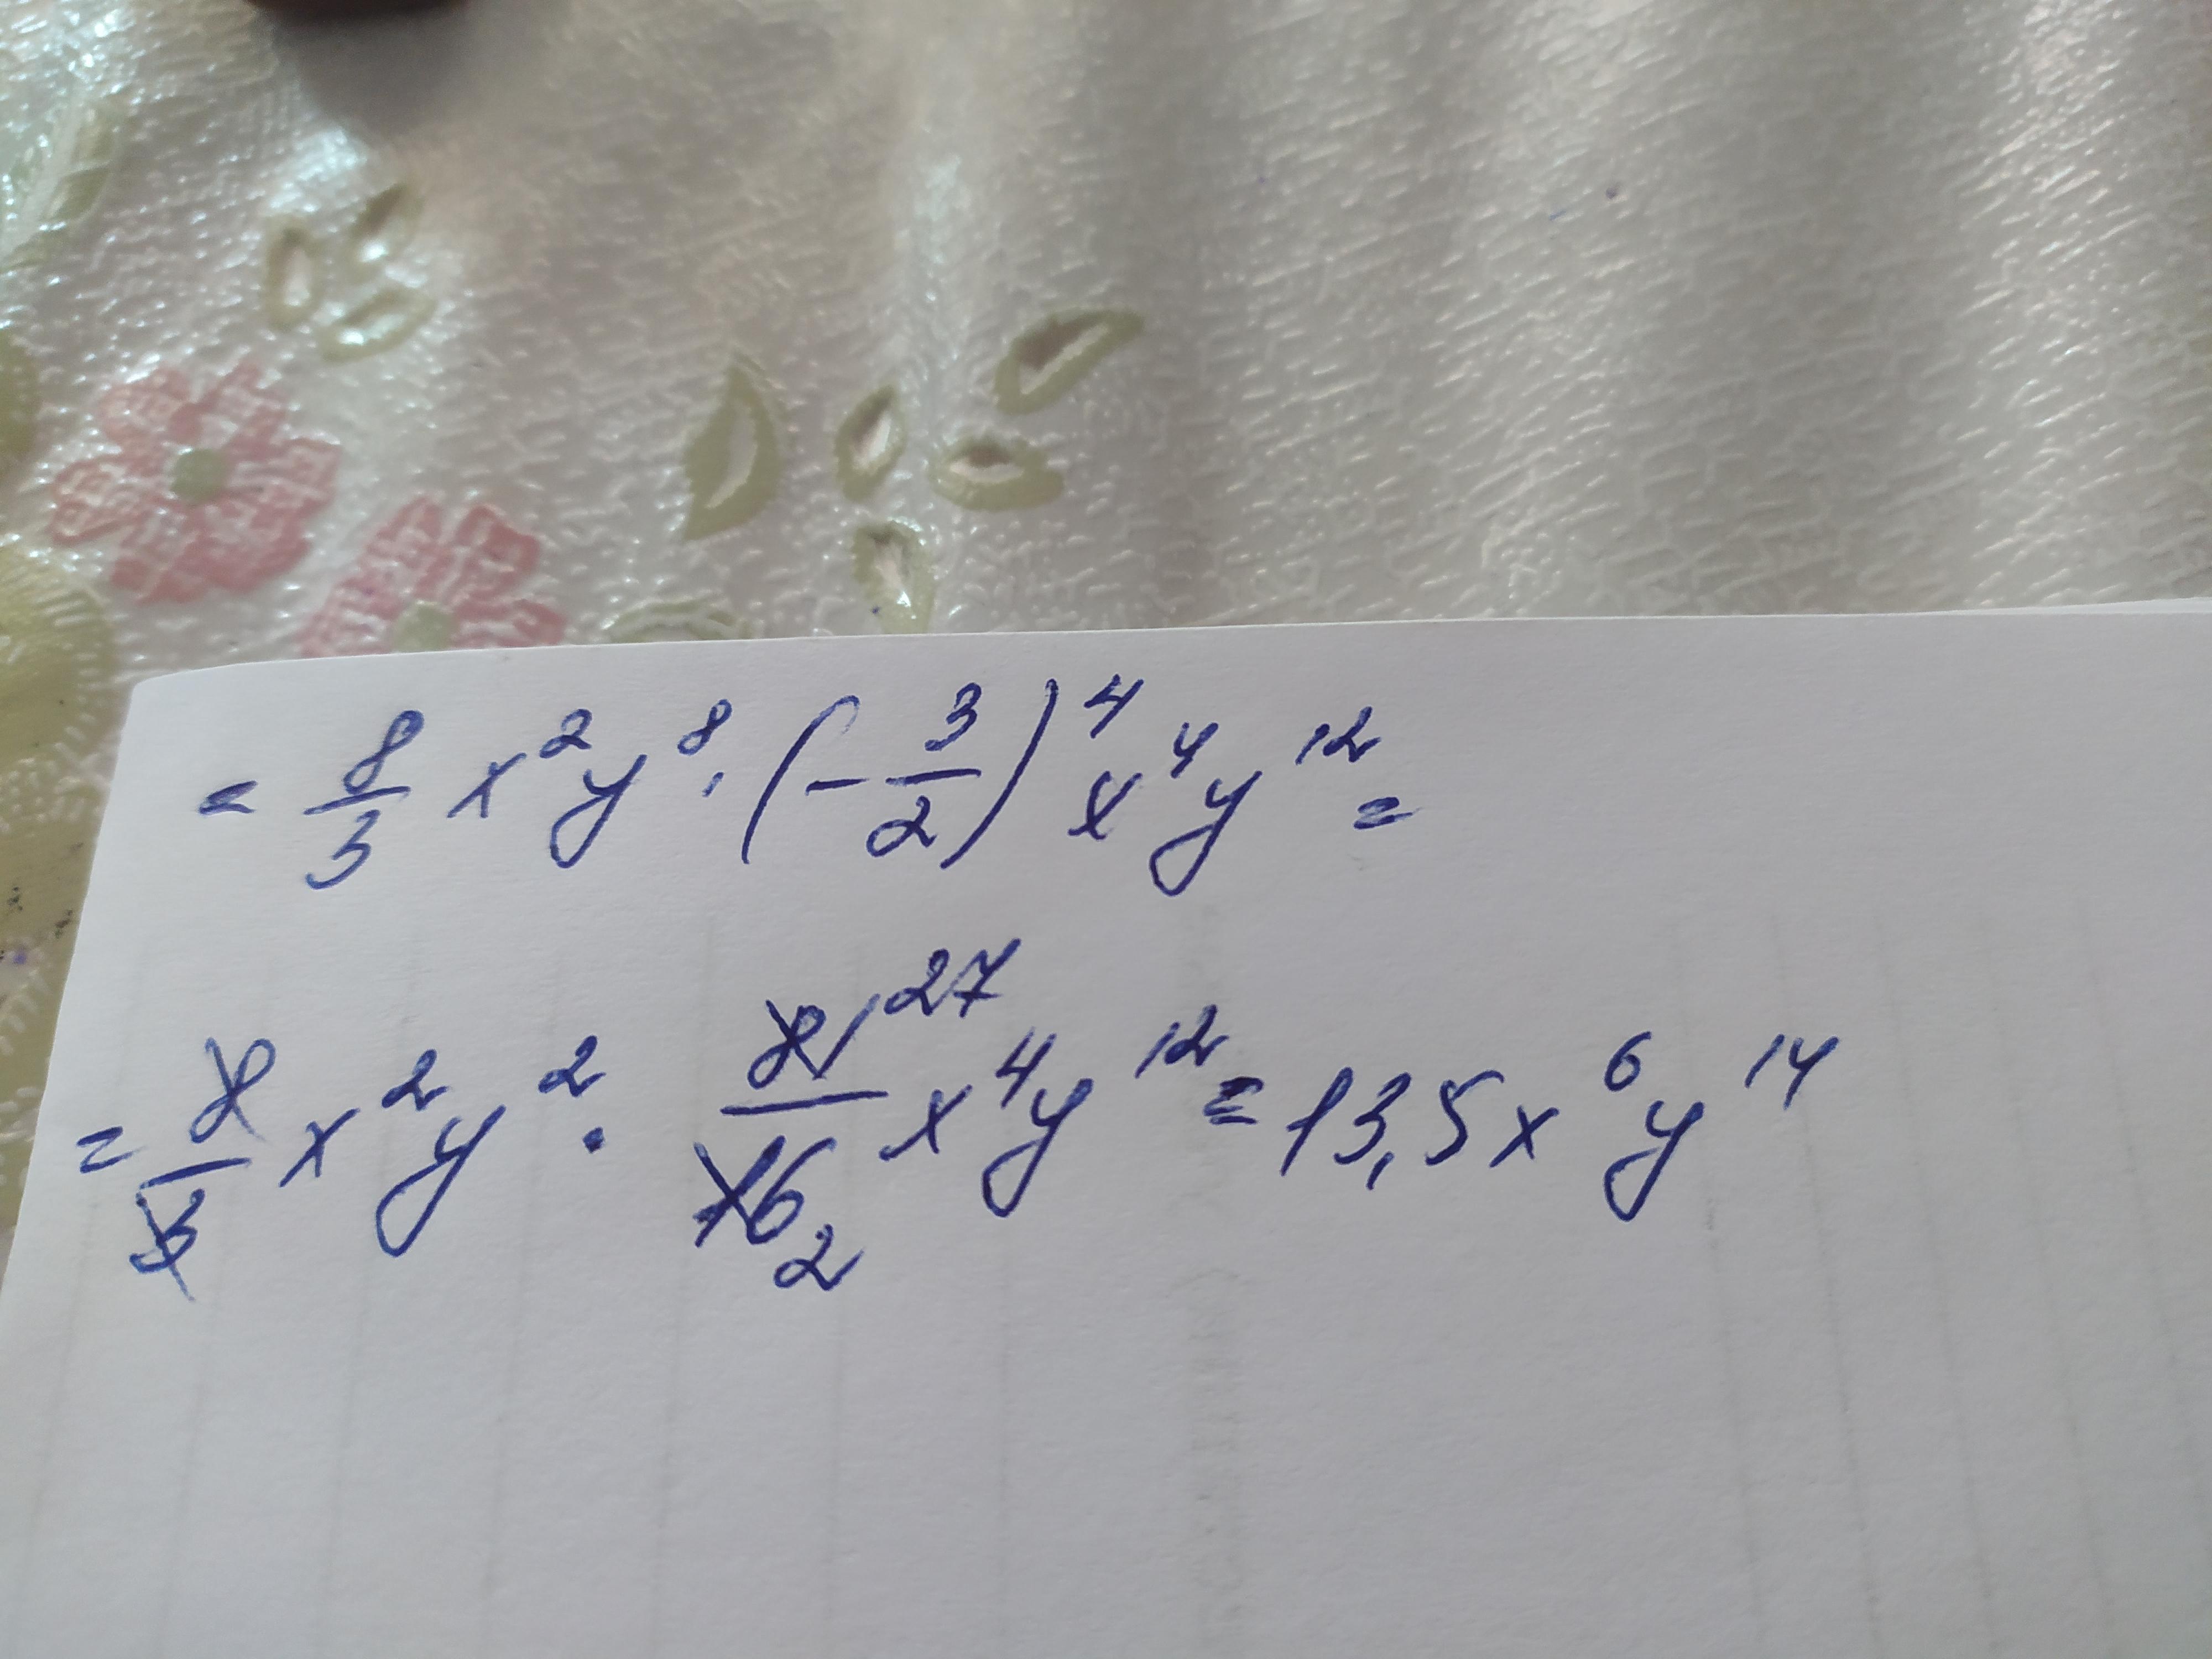 = 8/3 x²y⁸ · (-3/2)⁴ x⁴y¹² =
= 8/3 x²y² · 81²⁷/16₂ x⁴y¹² = 13,5x⁶y¹⁴